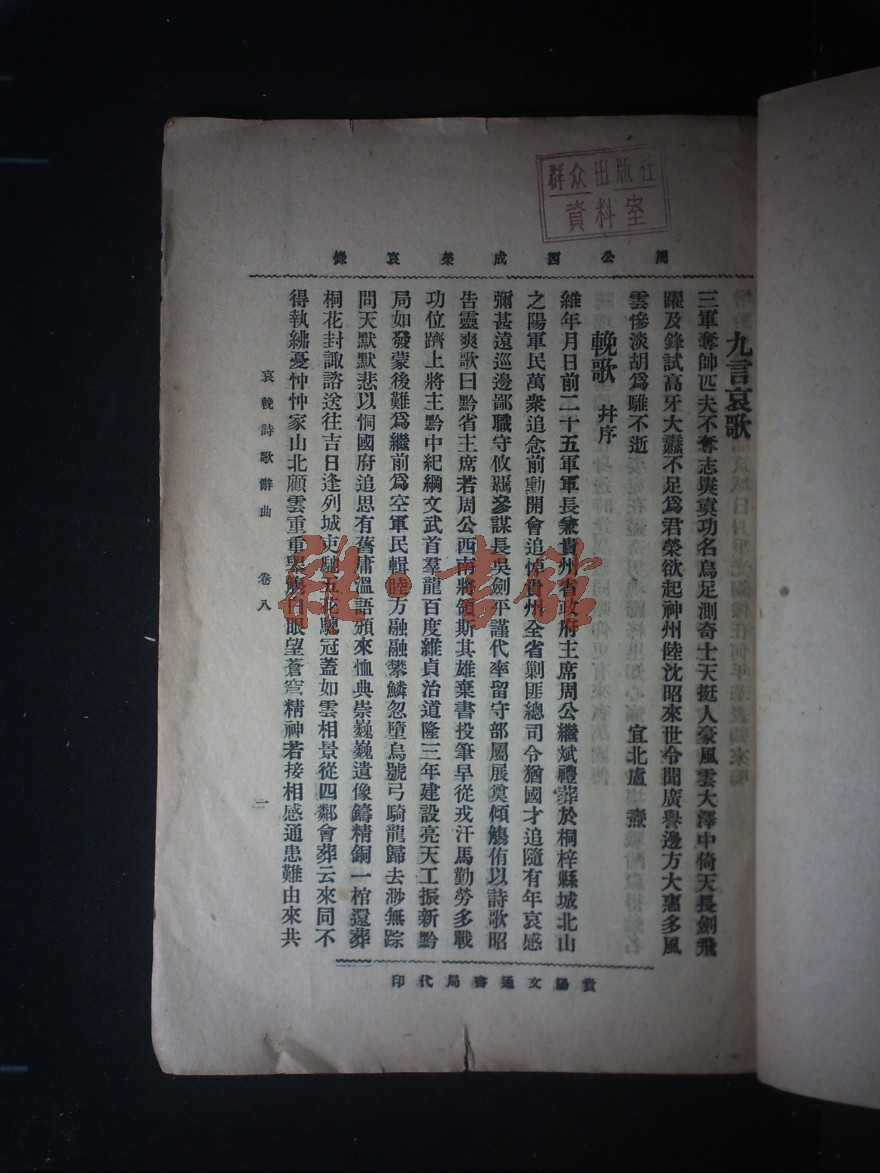 群众出版社
資料室
周公西成榮哀錄
九言哀歌
三軍奪帥匹夫不奪志與袞功名烏足測奇士天挺人豪風雲大澤中倚天長劍飛
躍及鋒試高牙大纛不足爲君榮欲起神州陸沈昭來世令聞廣譽邊方大惠多風
雲慘淡胡爲騅不逝 宜北盧燾
輓歌 幷序
維年月日前二十五軍軍長兼貴州省政府主席周公繼斌禮葬於桐梓縣城北山
之陽軍民萬衆追念前勳開會追悼貴州全省剿匪總司令猶國才追隨有年哀感
彌甚遠巡邊鄙職守攸羈參謀長吳劍平謹代率留守部屬展奠傾觴侑以詩歌昭
告靈爽歌曰黔省主席若周公西南將領斯其雄棄書投筆早從戎汗馬勤勞多戰
功位躋上將主黔中紀綱文武首羣龍百度維貞治道隆三年建設亮天工振新黔
局如發蒙後難爲繼前爲空軍民輯睦方融融攀鱗忽墮烏號弓騎龍歸去渺無踪
問天默默悲以恫國府追思有舊庸溫語頒來恤典崇巍巍遺像鑄精銅一棺還葬
桐花封諏諮送往吉日逢列城吏馳五花驄冠蓋如雲相景從四鄰會葬云來同不
得執紼憂忡忡家山北顧雲重重舉觴白眼望蒼穹精神若接相感通患難由來共
哀輓詩歌辭曲 卷八
一
貴陽文通書局代印
書館